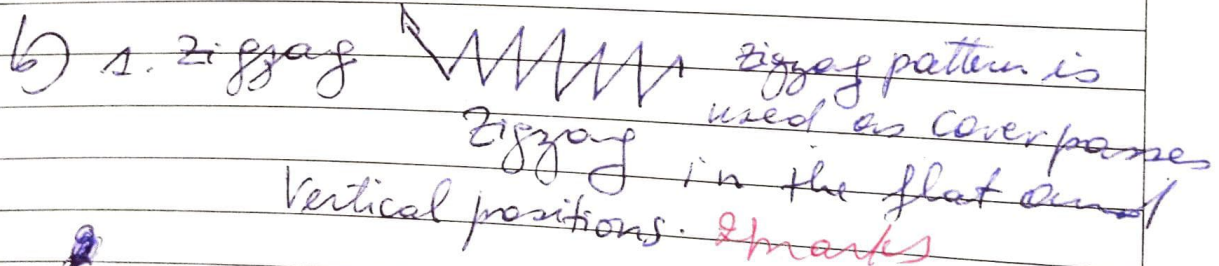 b) 1. Zigzag zigzag pattern is
Zigzag used as cover passes
in the flat and
Vertical positions. 2marks